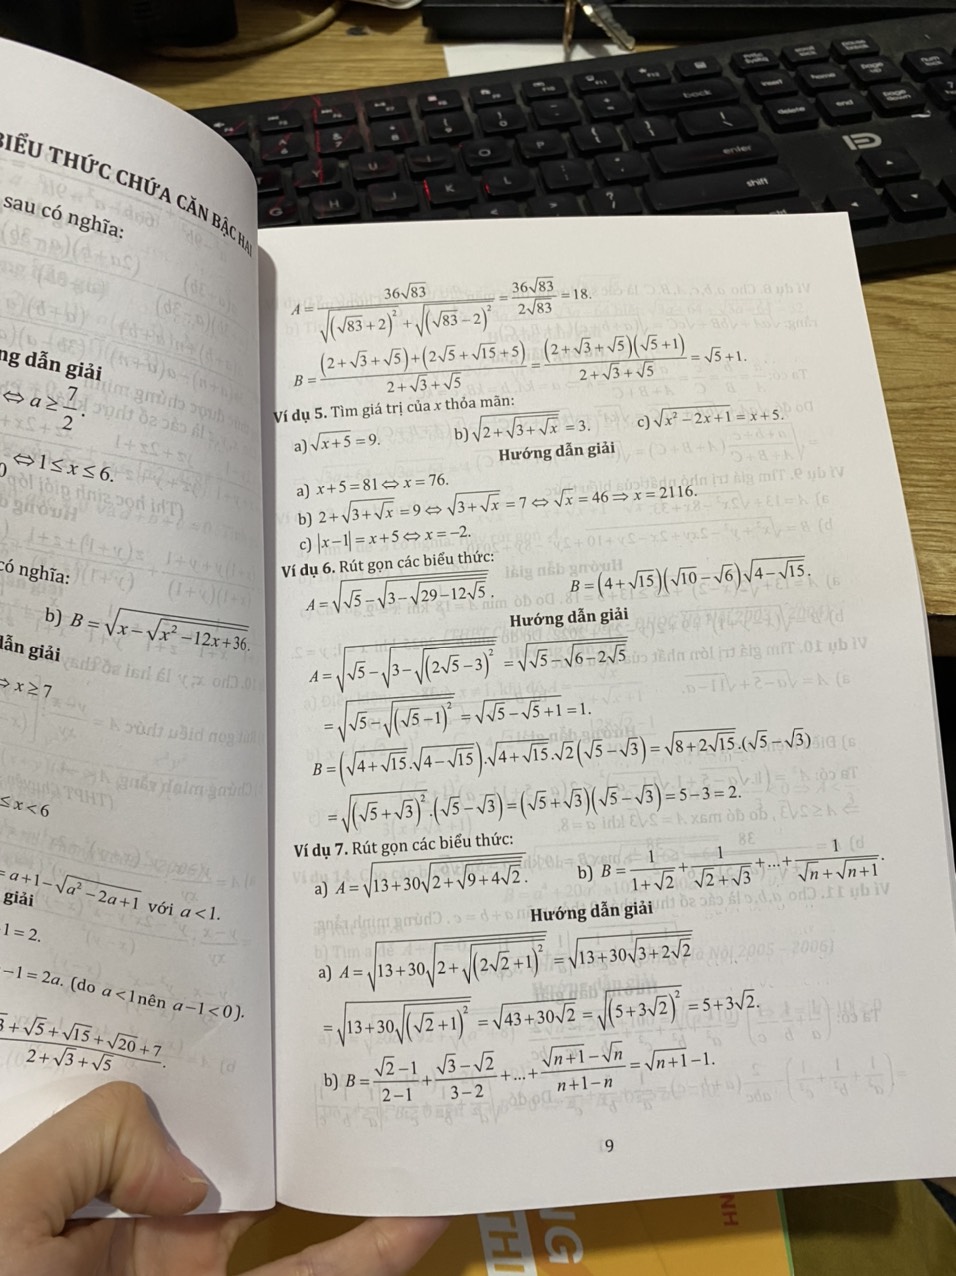 BIỂU THỨC CHỨA CĂN BẬC HAI
sau có nghĩa:
ng dẫn giải
⇔ a ≥ 7/2.
⇔ 1 ≤ x ≤ 6.
có nghĩa:
b) B = √(x − √(x² − 12x + 36)).
dẫn giải
⇒ x ≥ 7
≤ x < 6
= a + 1 − √(a² − 2a + 1) với a < 1.
giải
1 = 2.
− 1 = 2a. (do a < 1 nên a − 1 < 0).
√3 + √5 + √15 + √20 + 7 / 2 + √3 + √5.
A = 36√83 / (√((√83 + 2)²) + √((√83 − 2)²)) = 36√83 / 2√83 = 18.
B = ((2 + √3 + √5) + (2√5 + √15 + 5)) / (2 + √3 + √5) = ((2 + √3 + √5)(√5 + 1)) / (2 + √3 + √5) = √5 + 1.
Ví dụ 5. Tìm giá trị của x thỏa mãn:
a) √(x + 5) = 9. b) √(2 + √(3 + √x)) = 3. c) √(x² − 2x + 1) = x + 5.
Hướng dẫn giải
a) x + 5 = 81 ⇔ x = 76.
b) 2 + √(3 + √x) = 9 ⇔ √(3 + √x) = 7 ⇔ √x = 46 ⇒ x = 2116.
c) |x − 1| = x + 5 ⇔ x = −2.
Ví dụ 6. Rút gọn các biểu thức:
A = √(√5 − √(3 − √(29 − 12√5))). B = (4 + √15)(√10 − √6)√(4 − √15).
Hướng dẫn giải
A = √(√5 − √(3 − √((2√5 − 3)²))) = √(√5 − √(6 − 2√5))
= √(√5 − √((√5 − 1)²)) = √(√5 − √5 + 1) = 1.
B = (√(4 + √15).√(4 − √15)).√(4 + √15).√2(√5 − √3) = √(8 + 2√15).(√5 − √3)
= √((√5 + √3)²).(√5 − √3) = (√5 + √3)(√5 − √3) = 5 − 3 = 2.
Ví dụ 7. Rút gọn các biểu thức:
a) A = √(13 + 30√(2 + √(9 + 4√2))). b) B = 1/(1 + √2) + 1/(√2 + √3) + ... + 1/(√n + √(n + 1)).
Hướng dẫn giải
a) A = √(13 + 30√(2 + √((2√2 + 1)²))) = √(13 + 30√(3 + 2√2))
= √(13 + 30√((√2 + 1)²)) = √(43 + 30√2) = √((5 + 3√2)²) = 5 + 3√2.
b) B = (√2 − 1)/(2 − 1) + (√3 − √2)/(3 − 2) + ... + (√(n + 1) − √n)/(n + 1 − n) = √(n + 1) − 1.
9
enter
shift
NH
NG
THI